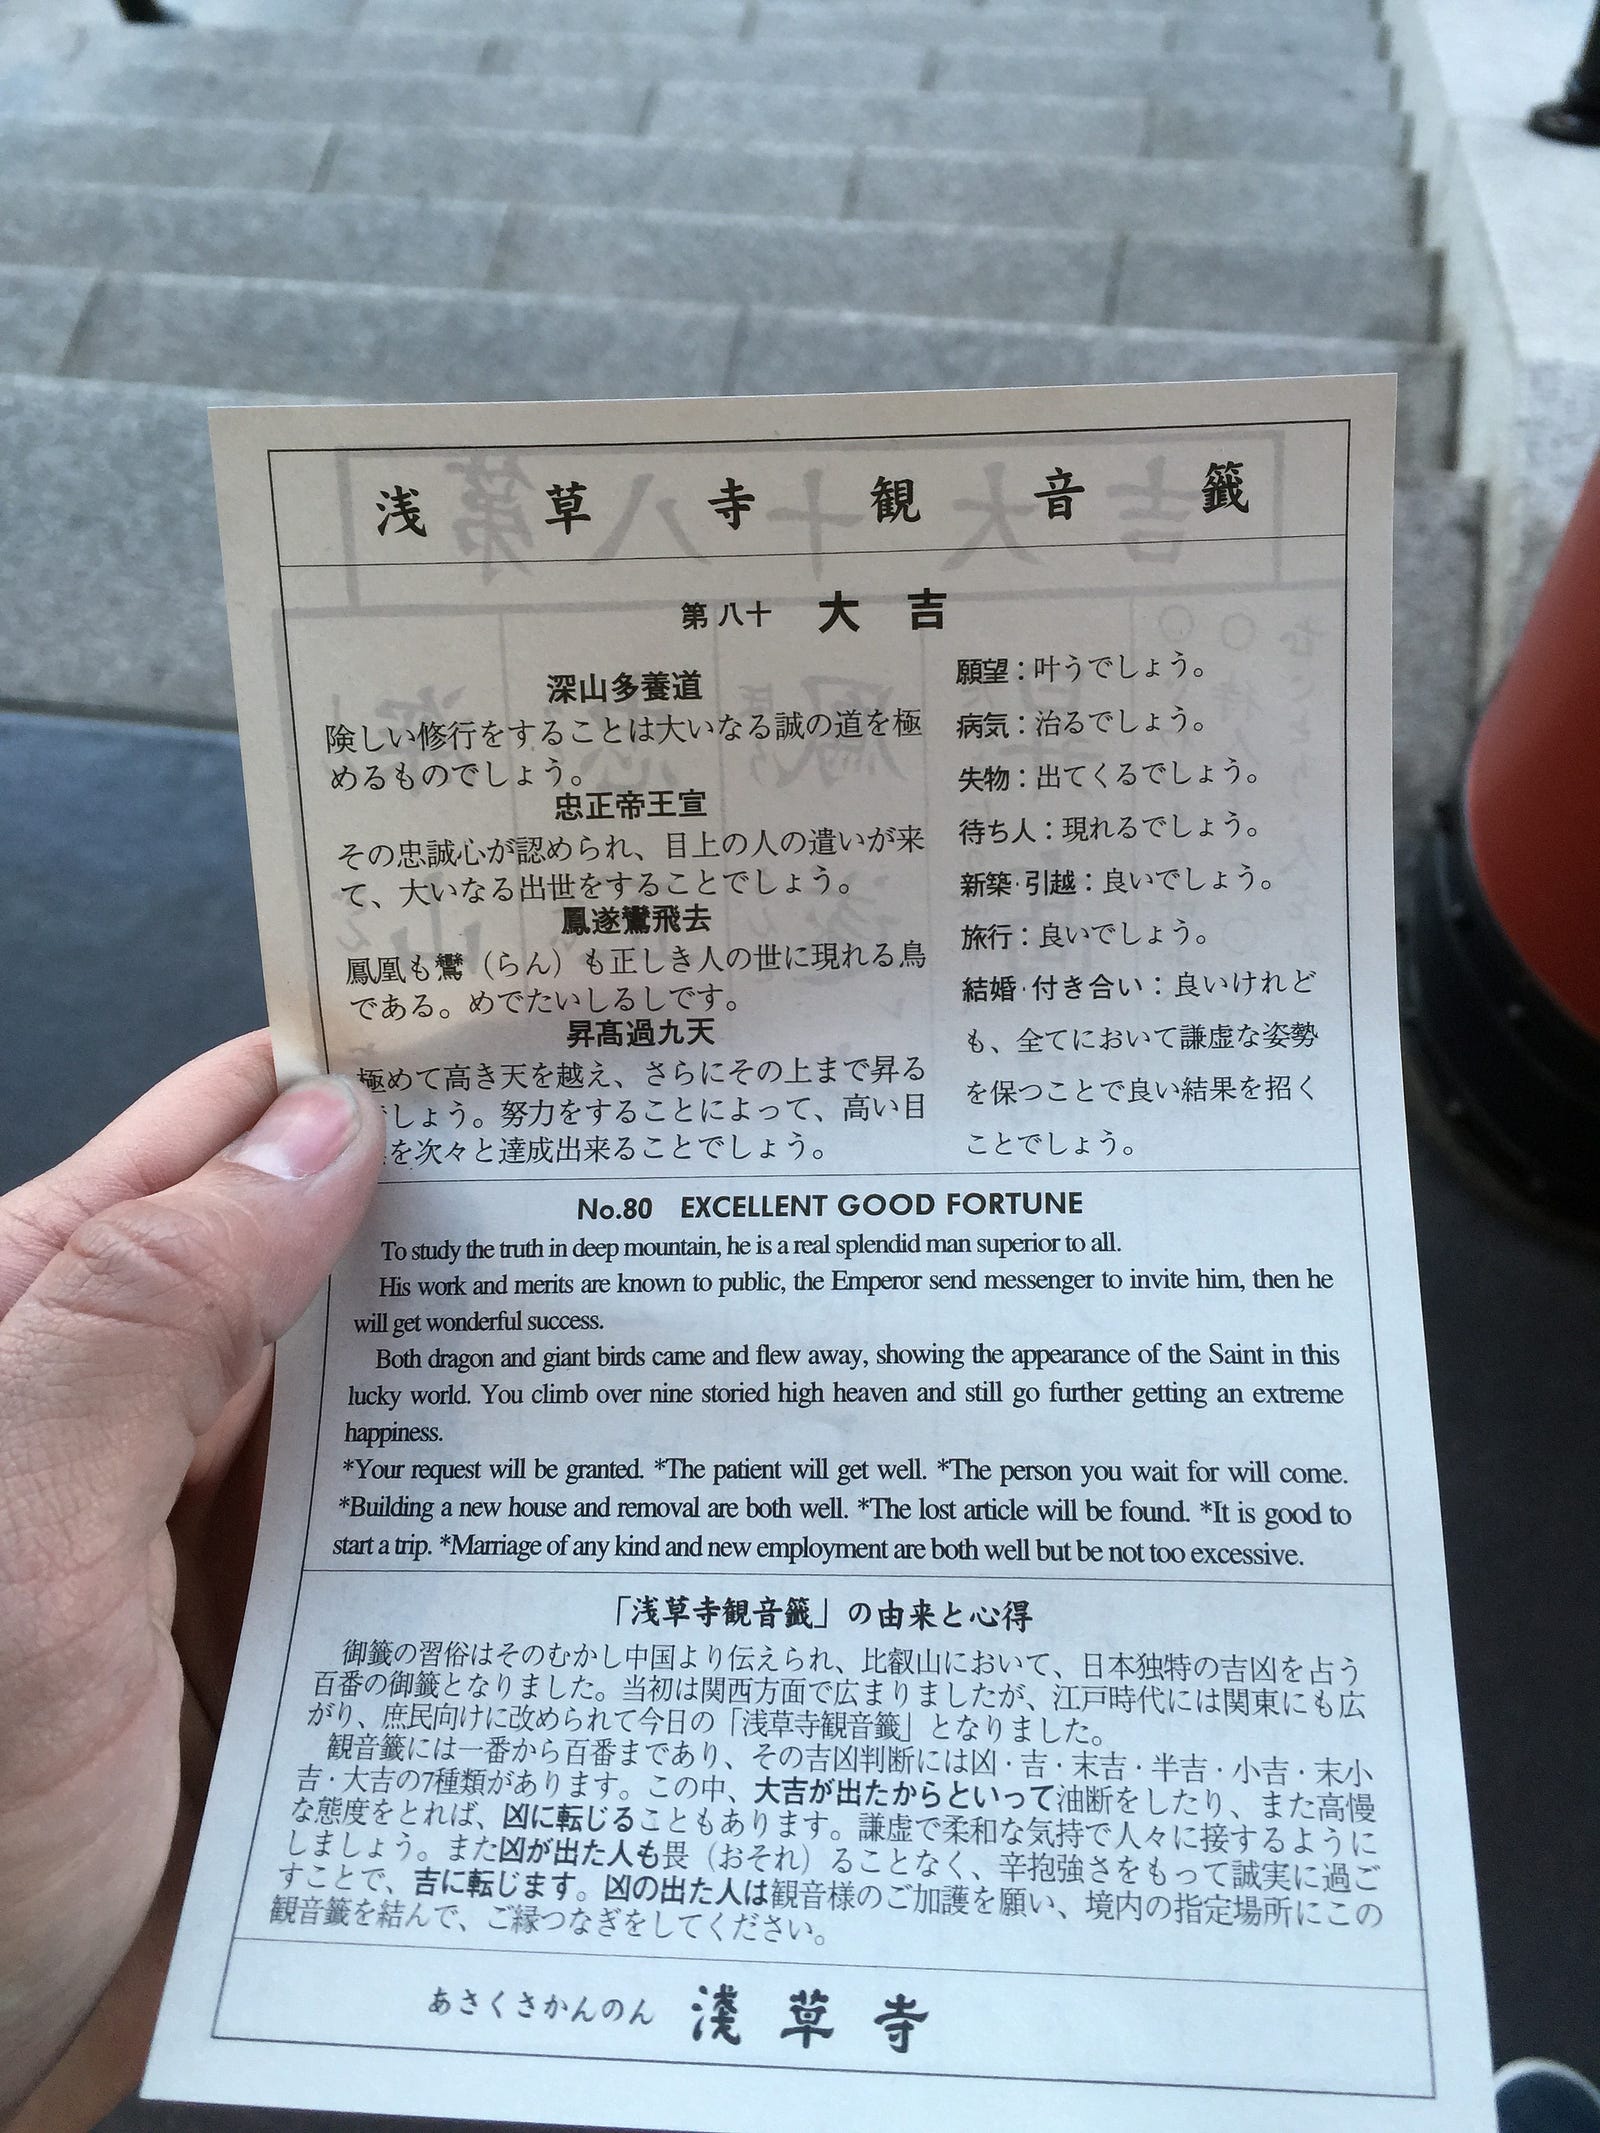 浅草寺観音籤
第八十 大吉
深山多養道
険しい修行をすることは大いなる誠の道を極
めるものでしょう。
忠正帝王宣
その忠誠心が認められ、目上の人の遣いが来
て、大いなる出世をすることでしょう。
鳳遂鸞飛去
鳳凰も鸞（らん）も正しき人の世に現れる鳥
である。めでたいしるしです。
昇髙過九天
極めて高き天を越え、さらにその上まで昇る
しょう。努力をすることによって、高い目
を次々と達成出来ることでしょう。
願望：叶うでしょう。
病気：治るでしょう。
失物：出てくるでしょう。
待ち人：現れるでしょう。
新築·引越：良いでしょう。
旅行：良いでしょう。
結婚·付き合い：良いけれど
も、全てにおいて謙虚な姿勢
を保つことで良い結果を招く
ことでしょう。
No.80 EXCELLENT GOOD FORTUNE
To study the truth in deep mountain, he is a real splendid man superior to all.
His work and merits are known to public, the Emperor send messenger to invite him, then he
will get wonderful success.
Both dragon and giant birds came and flew away, showing the appearance of the Saint in this
lucky world. You climb over nine storied high heaven and still go further getting an extreme
happiness.
*Your request will be granted. *The patient will get well. *The person you wait for will come.
*Building a new house and removal are both well. *The lost article will be found. *It is good to
start a trip. *Marriage of any kind and new employment are both well but be not too excessive.
「浅草寺観音籤」の由来と心得
御籤の習俗はそのむかし中国より伝えられ、比叡山において、日本独特の吉凶を占う
百番の御籤となりました。当初は関西方面で広まりましたが、江戸時代には関東にも広
がり、庶民向けに改められて今日の「浅草寺観音籤」となりました。
観音籤には一番から百番まであり、その吉凶判断には凶・吉・末吉・半吉・小吉・末小
吉・大吉の7種類があります。この中、大吉が出たからといって油断をしたり、また高慢
な態度をとれば、凶に転じることもあります。謙虚で柔和な気持で人々に接するように
しましょう。また凶が出た人も畏（おそれ）ることなく、辛抱強さをもって誠実に過ご
すことで、吉に転じます。凶の出た人は観音様のご加護を願い、境内の指定場所にこの
観音籤を結んで、ご縁つなぎをしてください。
あさくさかんのん 淺草寺